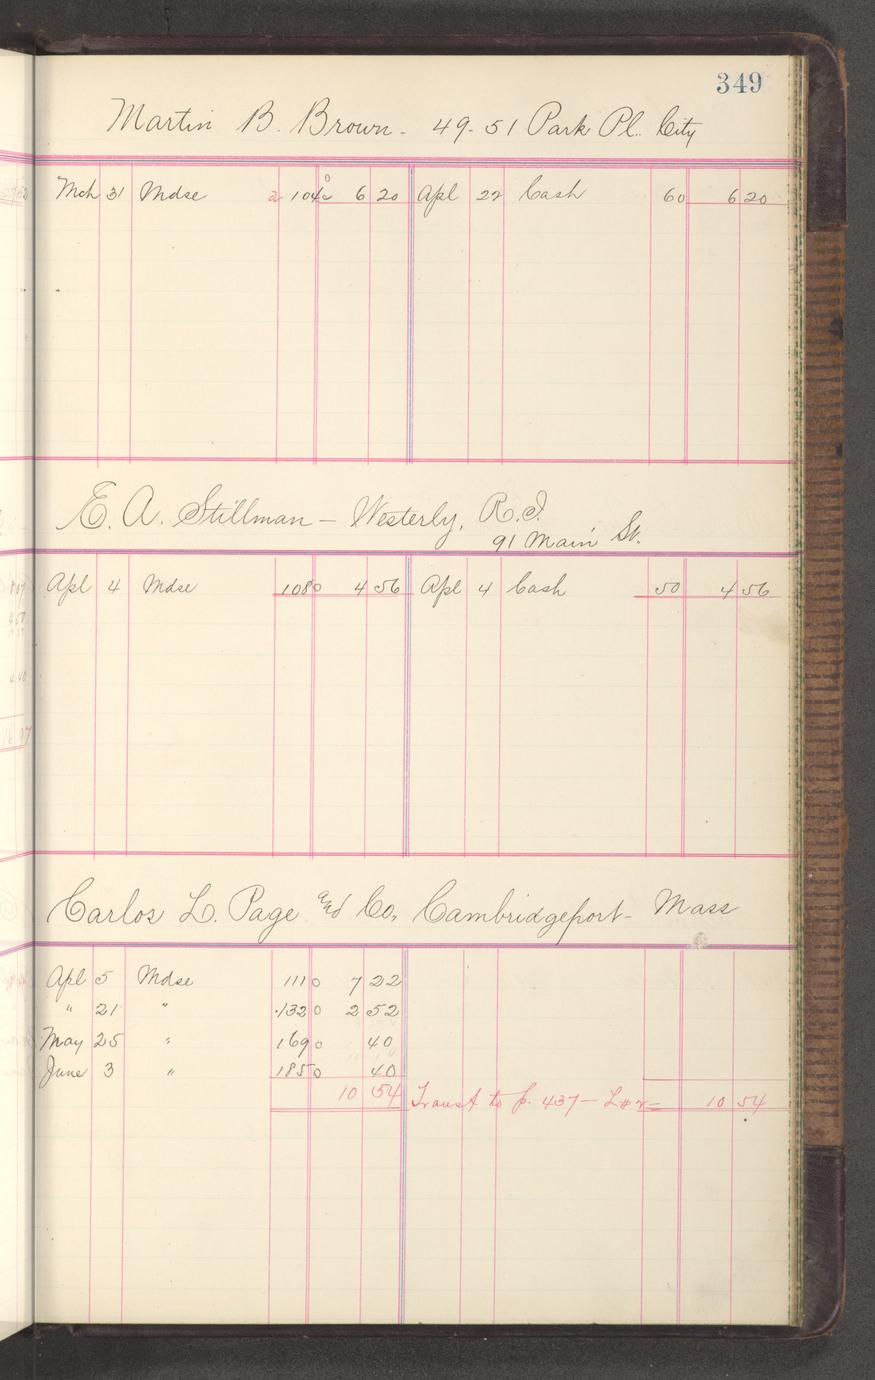 349
Martin B. Brown - 49-51 Park Pl. City
Mch 31 Mdse 2 104 0 6 20 Apl 22 Cash 60 6 20
E. A. Stillman - Westerly, R.I.
91 Main St.
Apl 4 Mdse 108 0 4 56 Apl 4 Cash 50 4 56
Carlos L. Page and Co, Cambridgeport - Mass
Apl 5 Mdse 111 0 7 22
" 21 " 132 0 2 52
May 25 " 169 0 40
June 3 " 185 0 40
10 54 Transf to p. 437 - L#2 = 10 54